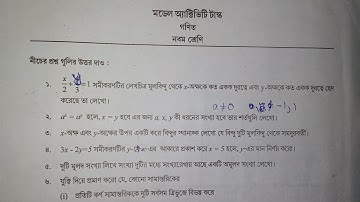 মডেল অ্যাক্টিভিটি টাস্ক
গণিত
নবম শ্রেণি
নীচের প্রশ্ন গুলির উত্তর দাও :
১. x/2 + y/3 = 1 সমীকরণটির লেখচিত্র মূলবিন্দু থেকে x-অক্ষকে কত একক দূরত্বে এবং y-অক্ষকে কত একক দূরত্বে ছেদ
করেছে তা লেখো। a≠0
২. aˣ = aʸ হলে, x = y হলে এর জন্য a, x, y কী ধরনের সংখ্যা হবে তার শর্তগুলি লেখো।
৩. x-অক্ষ এবং y-অক্ষের উপর একটি করে বিন্দুর স্থানাঙ্ক লেখো যে বিন্দু দুটি মূলবিন্দু থেকে সমদূরবর্তী।
৪. 3x - 2y=5 সমীকরণটির আকারে প্রকাশ করে x = 5 হলে, y-এর মান নির্ণয় করো।
৫. দুটি মূলদ সংখ্যা লিখে সংখ্যা দুটির মধ্যে সংখ্যারেখায় আছে একটি অমূলদ সংখ্যা লেখো।
৬. যুক্তি দিয়ে প্রমাণ করো যে, কোনো সামান্তরিকের
(i) প্রতিটি কর্ণ সামান্তরিককে দুটি সর্বসম ত্রিভুজে বিভক্ত করে